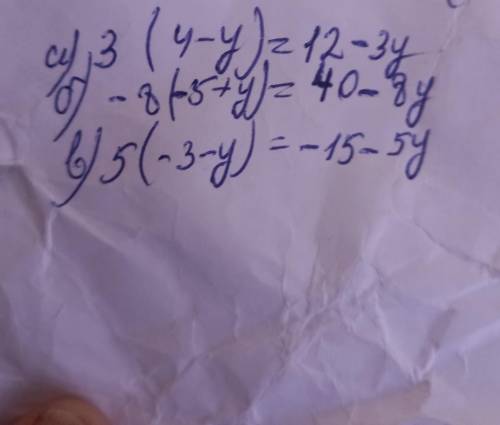 а) 3 (4-y) = 12 - 3y
б) - 8(-5+y) = 40 - 8y
в) 5(-3-y) = -15 - 5y